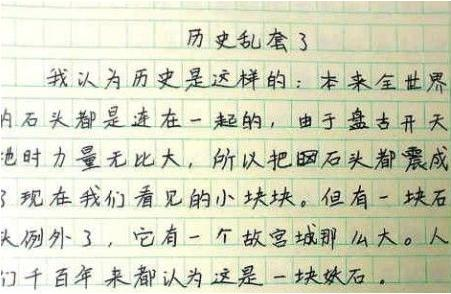 历史乱套了
我认为历史是这样的：本来全世界
的石头都是连在一起的，由于盘古开天
地时力量无比大，所以把石头都震成
了现在我们看见的小块块。但有一块石
头例外了，它有一个故宫城那么大。人
们千百年来都认为这是一块妖石。